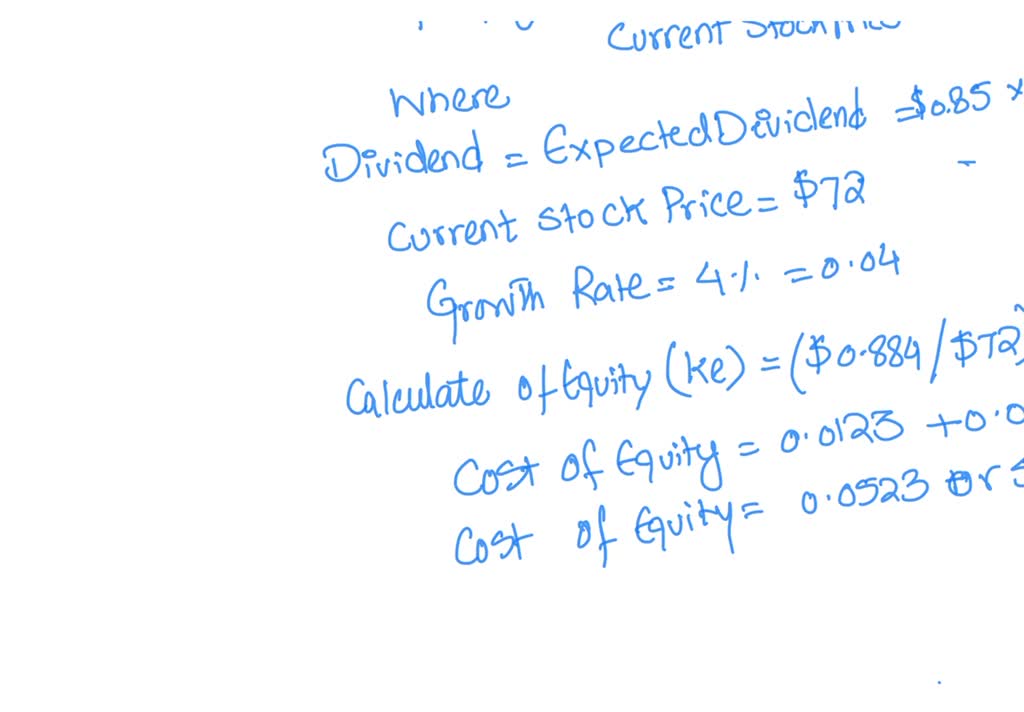 Current Stock
Where
Dividend = Expected Dividend = $0.85 ×
Current Stock Price = $72
Growth Rate = 4% = 0.04
Calculate of Equity (ke) = ($0.884 / $72)
Cost of Equity = 0.0123 + 0.0
Cost of Equity = 0.0523 or 5